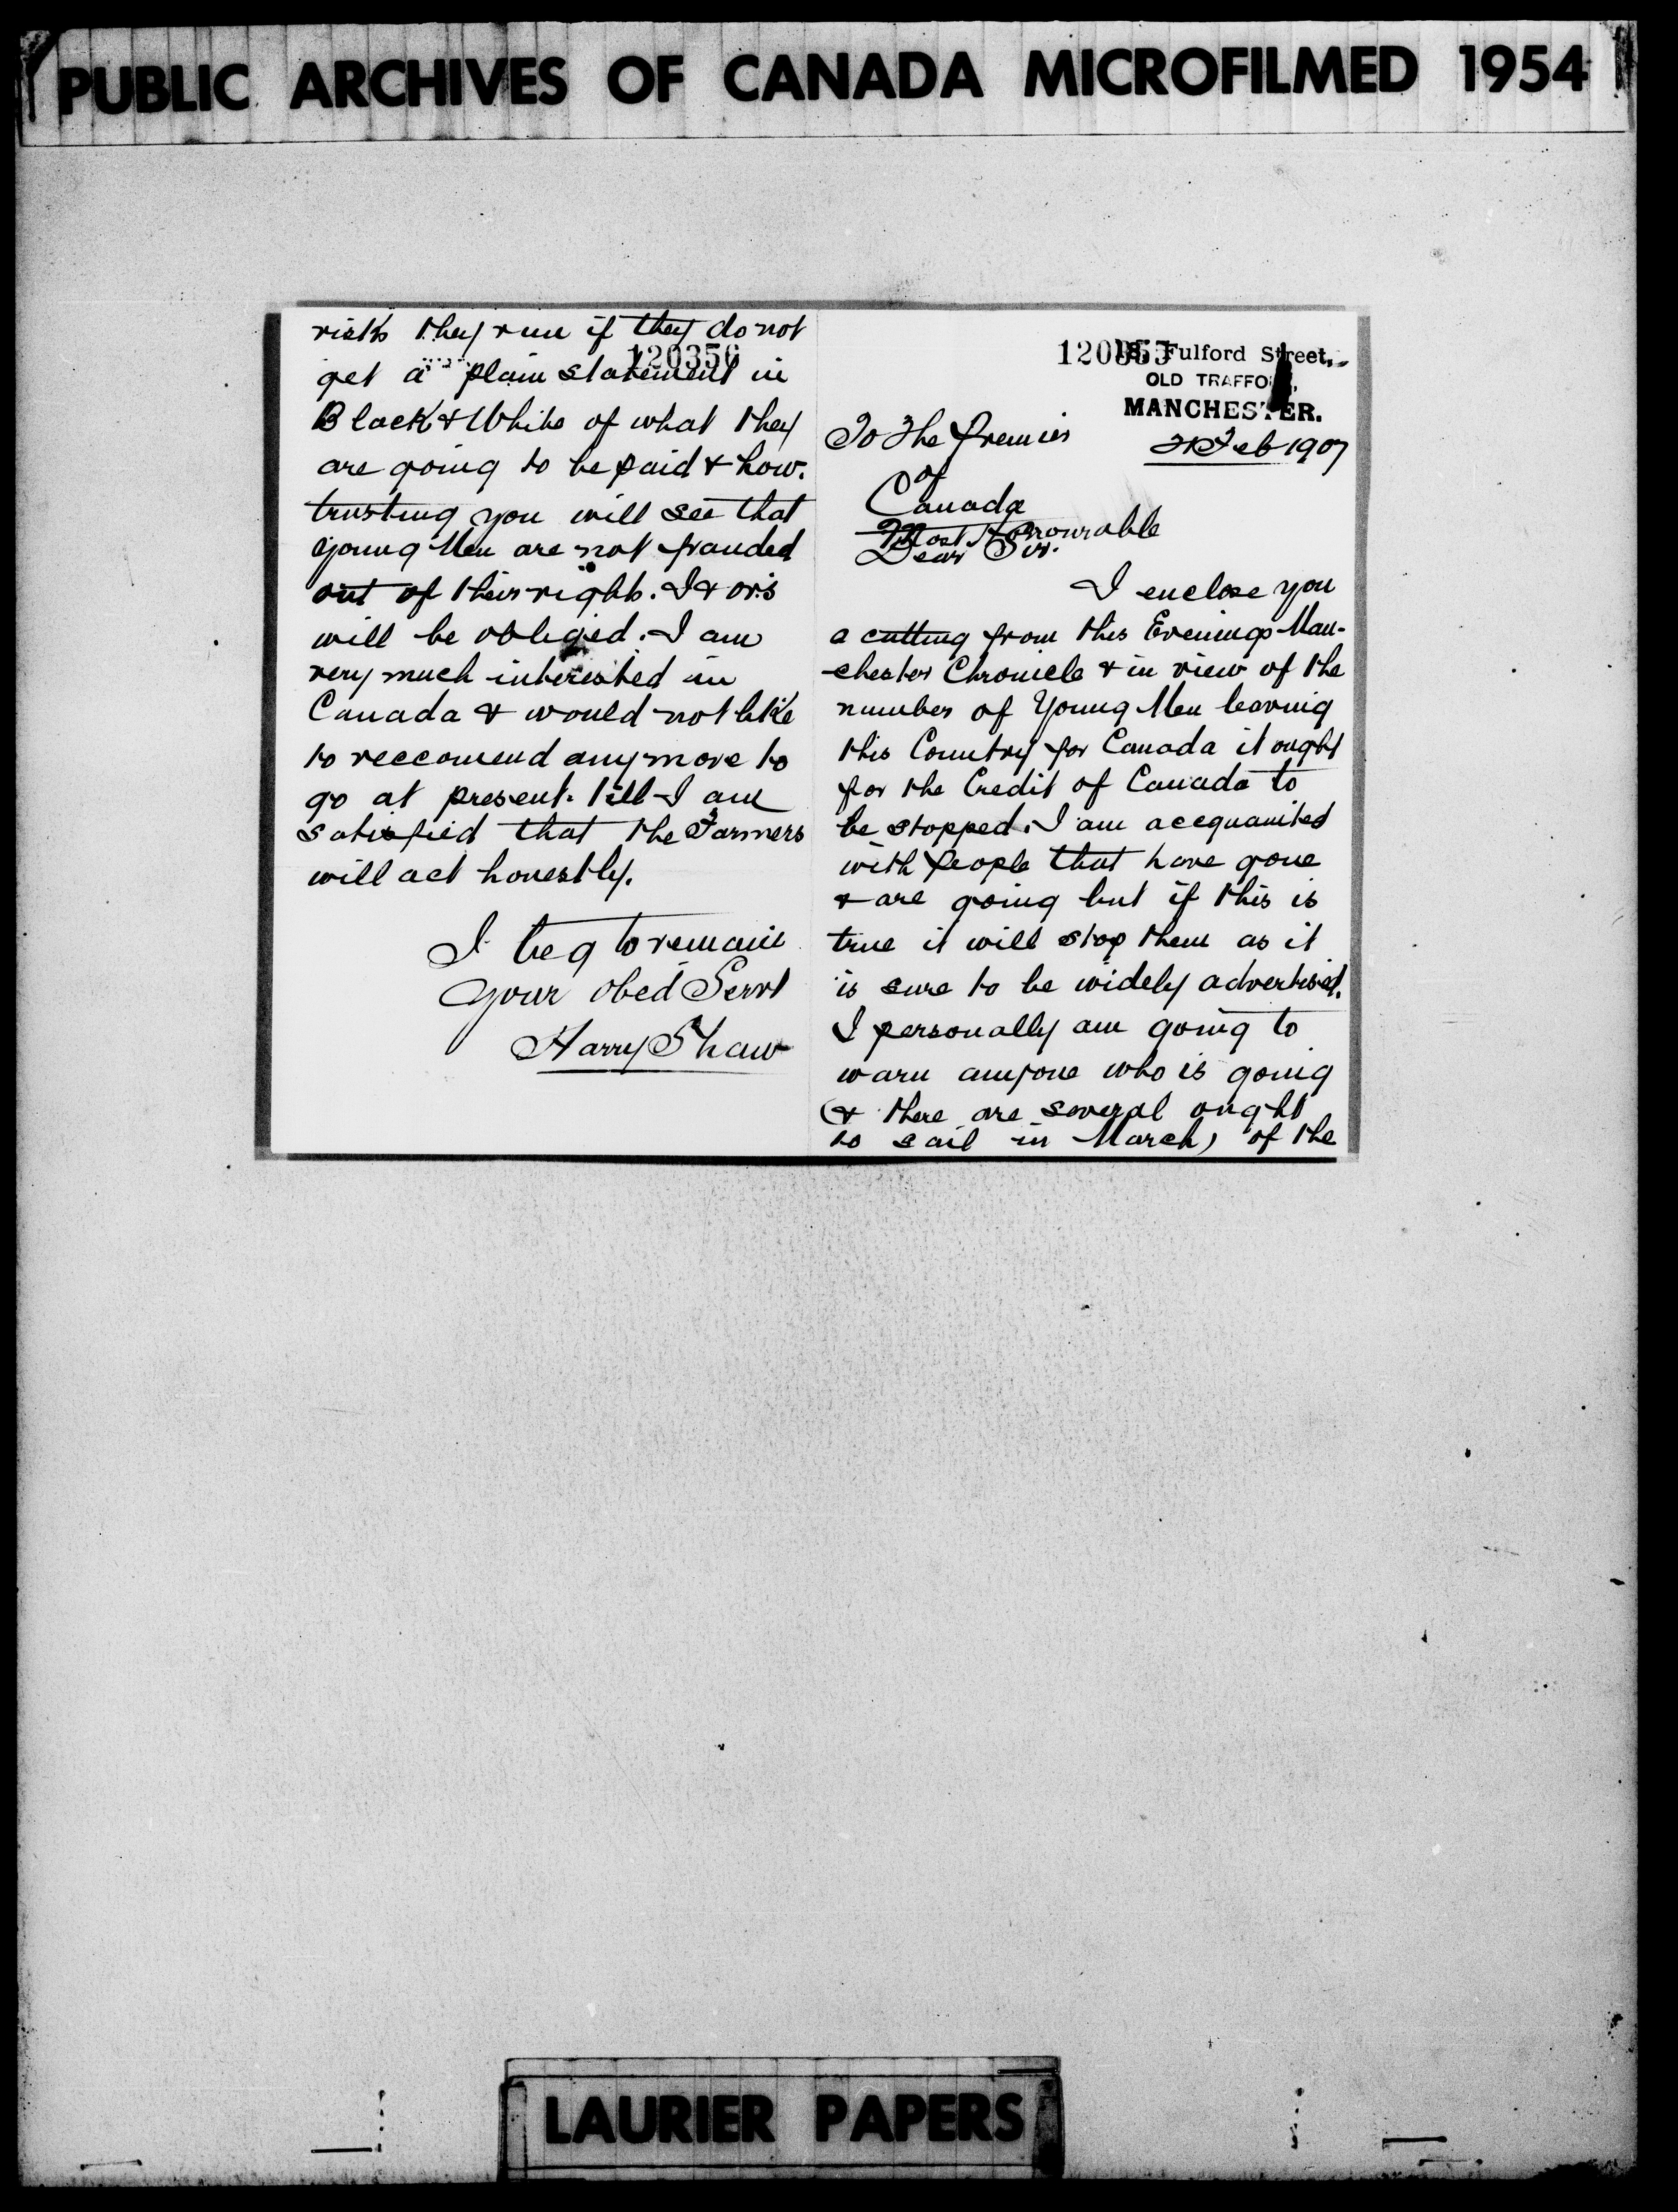 PUBLIC ARCHIVES OF CANADA MICROFILMED 1954
120355
Fulford Street,
OLD TRAFFORD,
MANCHESTER.
To The Premier
21 Feb 1907
of
Canada
Most Honourable
Dear Sir.
I enclose you
a cutting from this Evenings Man-
chester Chronicle & in view of the
number of Young Men leaving
this Country for Canada it ought
for the Credit of Canada to
be stopped. I am accquainted
with people that have gone
& are going but if this is
true it will stop them as it
is sure to be widely advertised.
I personally am going to
warn anyone who is going
(& there are several ought
to sail in March) of the
120356
risks they run if they do not
get a plain statement in
Black & White of what they
are going to be paid & how.
trusting you will see that
young Men are not frauded
out of their rights. I & ors
will be obliged. I am
very much interested in
Canada & would not like
to reccomend any more to
go at present. till I am
satisfied that the Farmers
will act honestly.
I beg to remain
Your obed Servt
Harry Shaw
LAURIER PAPERS